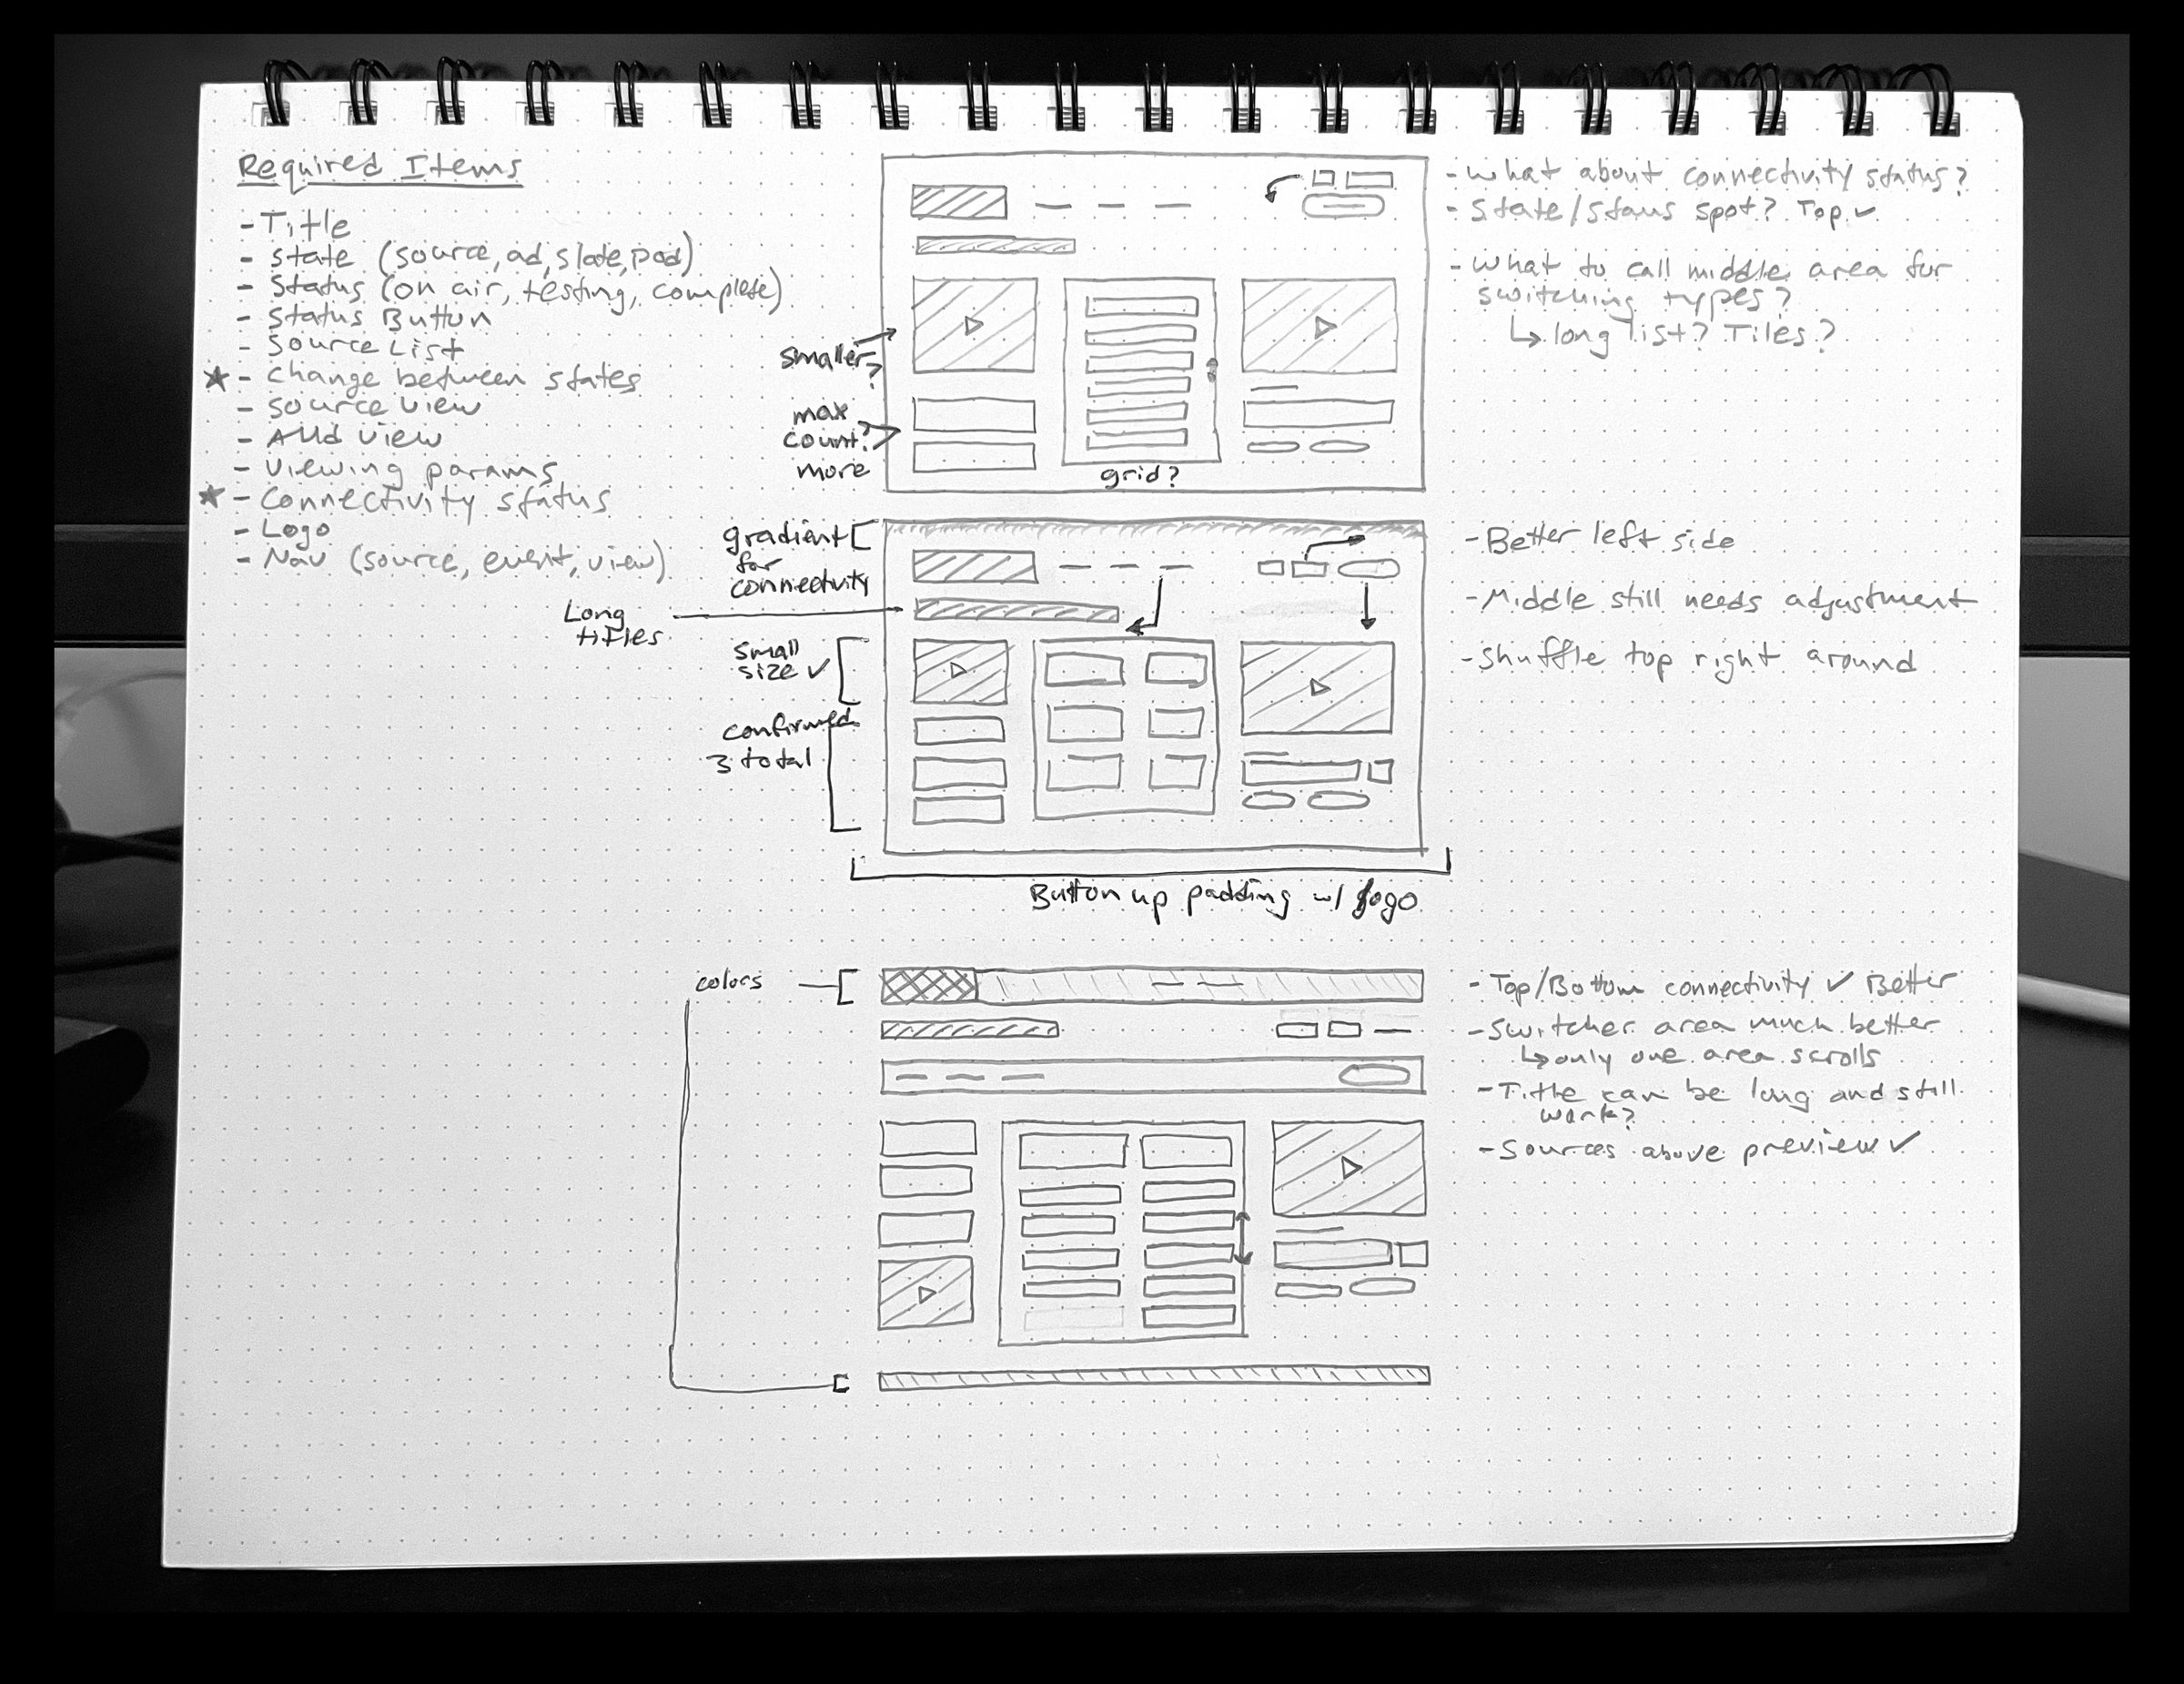 Required Items
- Title
- State (source, ad, slate, pod)
- Status (on air, testing, complete)
- Status Button
- Source List
★ - Change between states
- Source view
- view
- Viewing params
★ - Connectivity status
- Logo
- Nav (source, event, view)
smaller?
max
count?
more
grid?
- What about connectivity status?
- State/Staus spot? Top ✓
- What to call middle area for
switching types?
↳ long list? Tiles?
gradient
for
connectivity
Long
titles
Small
size ✓
confirmed
3 total
Button up padding w/ logo
- Better left side
- Middle still needs adjustment
- Shuffle top right around
colors
- Top/Bottom connectivity ✓ Better
- Switcher area much better
↳ only one area scrolls
- Title can be long and still
work?
- Sources above preview ✓